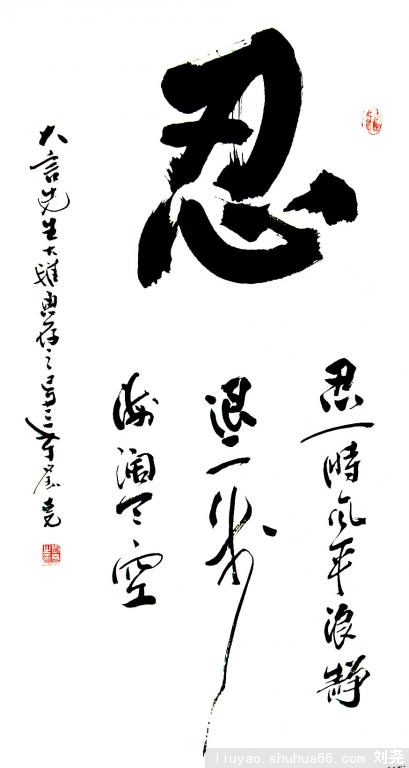 忍
忍一時风平浪静
退一步
海阔天空
大言先生大雅惠存之
liuyao.shuhua66.com 刘尧